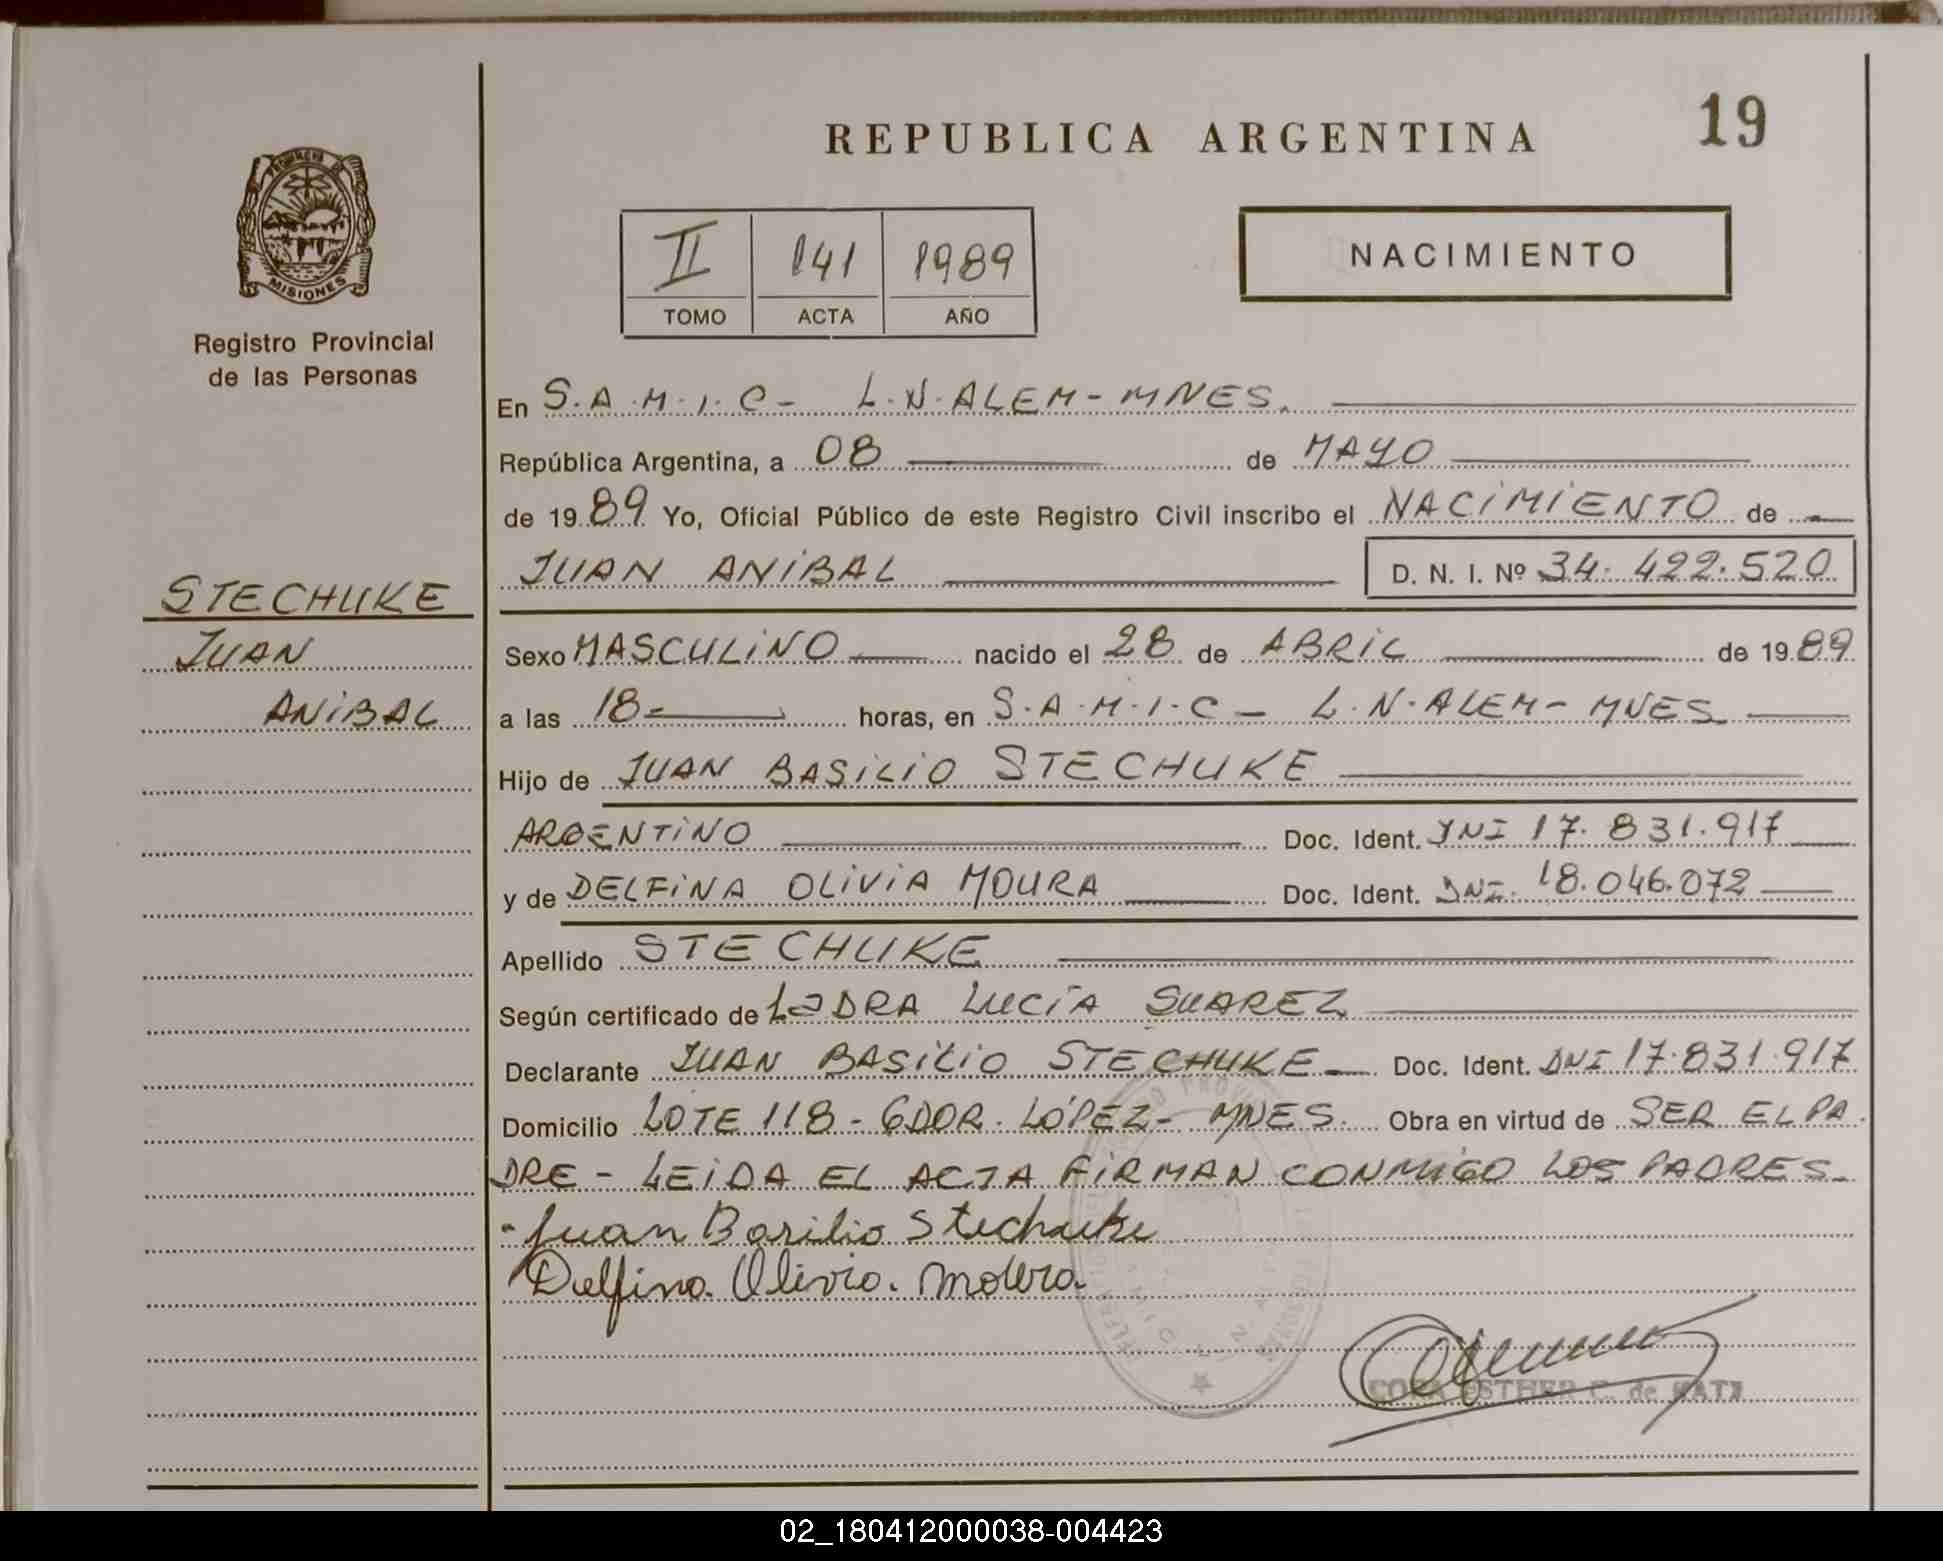 REPUBLICA ARGENTINA
19
MISIONES
Registro Provincial
de las Personas
II 141 1989
TOMO ACTA AÑO
NACIMIENTO
En S.A.M.I.C- L.N.ALEM-MNES.
República Argentina, a 08 de MAYO
de 1989 Yo, Oficial Público de este Registro Civil inscribo el NACIMIENTO de
JUAN ANIBAL D. N. I. Nº 34.422.520
STECHUKE
JUAN
ANIBAL
Sexo MASCULINO nacido el 28 de ABRIL de 1989
a las 18- horas, en S.A.M.I.C- L.N.ALEM-MNES
Hijo de JUAN BASILIO STECHUKE
ARGENTINO Doc. Ident. DNI 17.831.917
y de DELFINA OLIVIA MOURA Doc. Ident. DNI. 18.046.072
Apellido STECHUKE
Según certificado de LUCÍA SUAREZ
Declarante JUAN BASILIO STECHUKE Doc. Ident. DNI 17.831.917
Domicilio LOTE 118-GDOR.LÓPEZ-MNES. Obra en virtud de SER EL PA
DRE- LEIDA EL ACTA FIRMAN CONMIGO LOS PADRES-
Juan Basilio Stechuke
Delfina Olivia.
ESTHER C. de
02_180412000038-004423